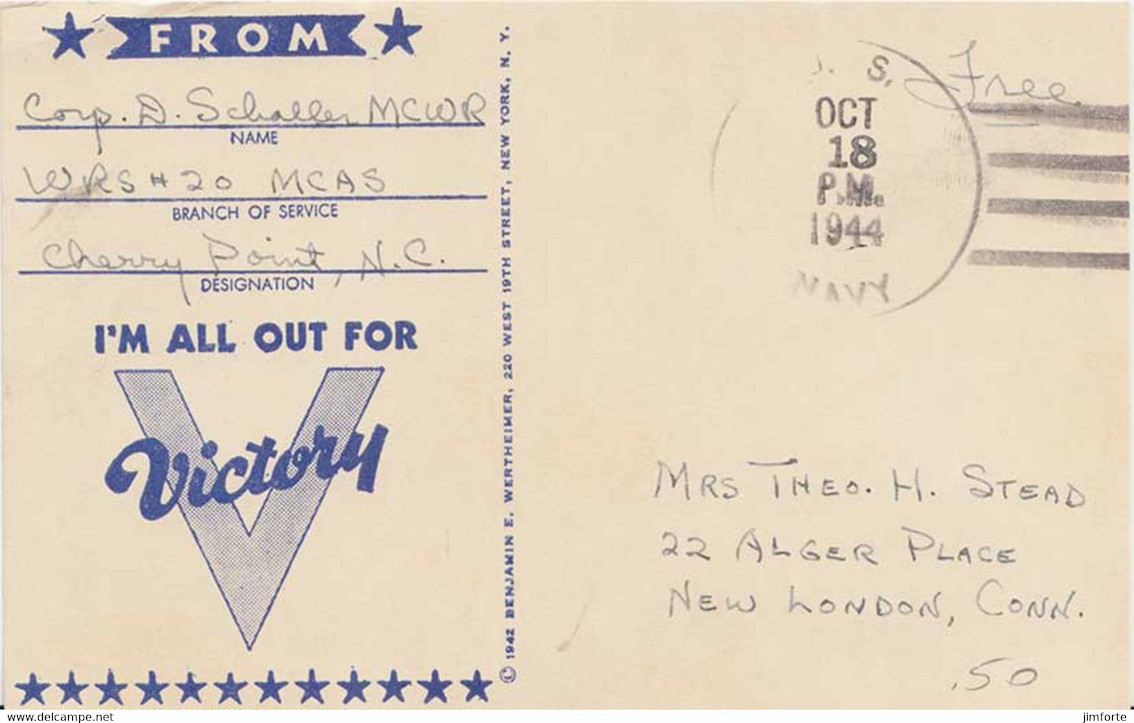 FROM
Corp. D. Schaller MCWR
NAME
WRS #20 MCAS
BRANCH OF SERVICE
Cherry Point, N.C.
DESIGNATION
I'M ALL OUT FOR
Victory
© 1942 BENJAMIN E. WERTHEIMER, 220 WEST 19TH STREET, NEW YORK, N. Y.
S.
OCT
18
P.M.
1944
NAVY
Free
MRS THEO. H. STEAD
22 ALGER PLACE
NEW LONDON, CONN.
.50
delcampe.net
jimforte